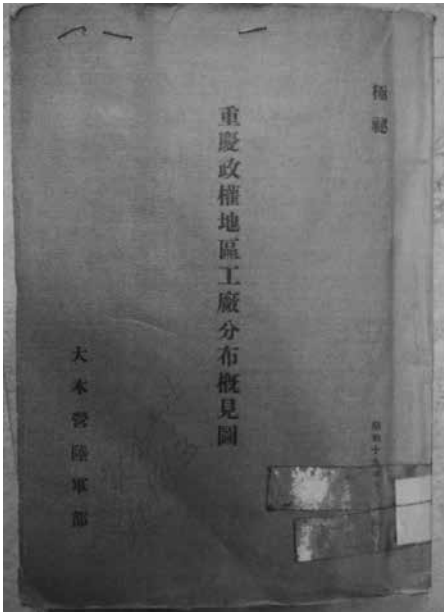 極祕
昭和十
重慶政權地區工廠分布概見圖
大本營陸軍部